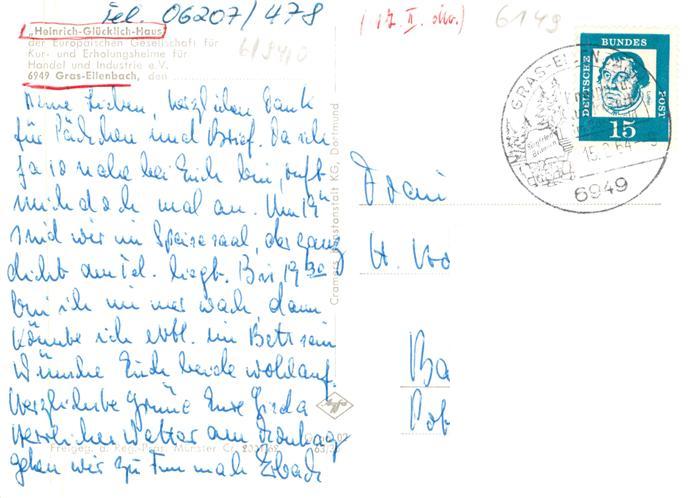 Tel. 06207/478
(17. II.
6149
"Heinrich-Glücklich-Haus"
der Europäischen Gesellschaft für
Kur- und Erholungsheime für
Handel und Industrie e.V.
6949 Gras-Ellenbach, den
DEUTSCHE BUNDESPOST
15
GRAS-ELLENBACH
15.2.64
6949
Meine Lieben, herzlichen Dank
für Päckchen und Brief. Da ich
ja so nahe bei Euch bin, ruft
mich doch mal an. Um
sind wir im Speisesaal, der ganz
dicht am Tel. liegt. Bis 19 30
bin ich immer wach, dann
könnte ich evtl. im Bett sein
Wünsche Euch beide wohlauf.
Herzlichste Grüße Eure
Herrliches Wetter am
gehen wir zu
Cramers Kunstanstalt KG, Dortmund
Freigeg. d. Reg.-Präs. Münster
H.
Ba